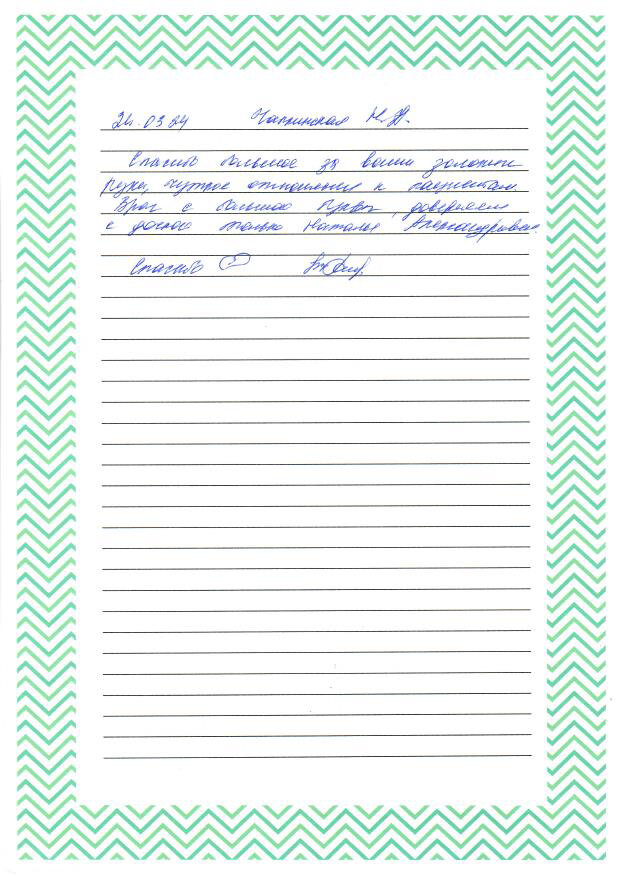 Спасибо большое за ваши золотые
руки, чуткое отношение к пациентам.
Врач с большой буквы, доверяем
только Наталье Александровне.
Спасибо